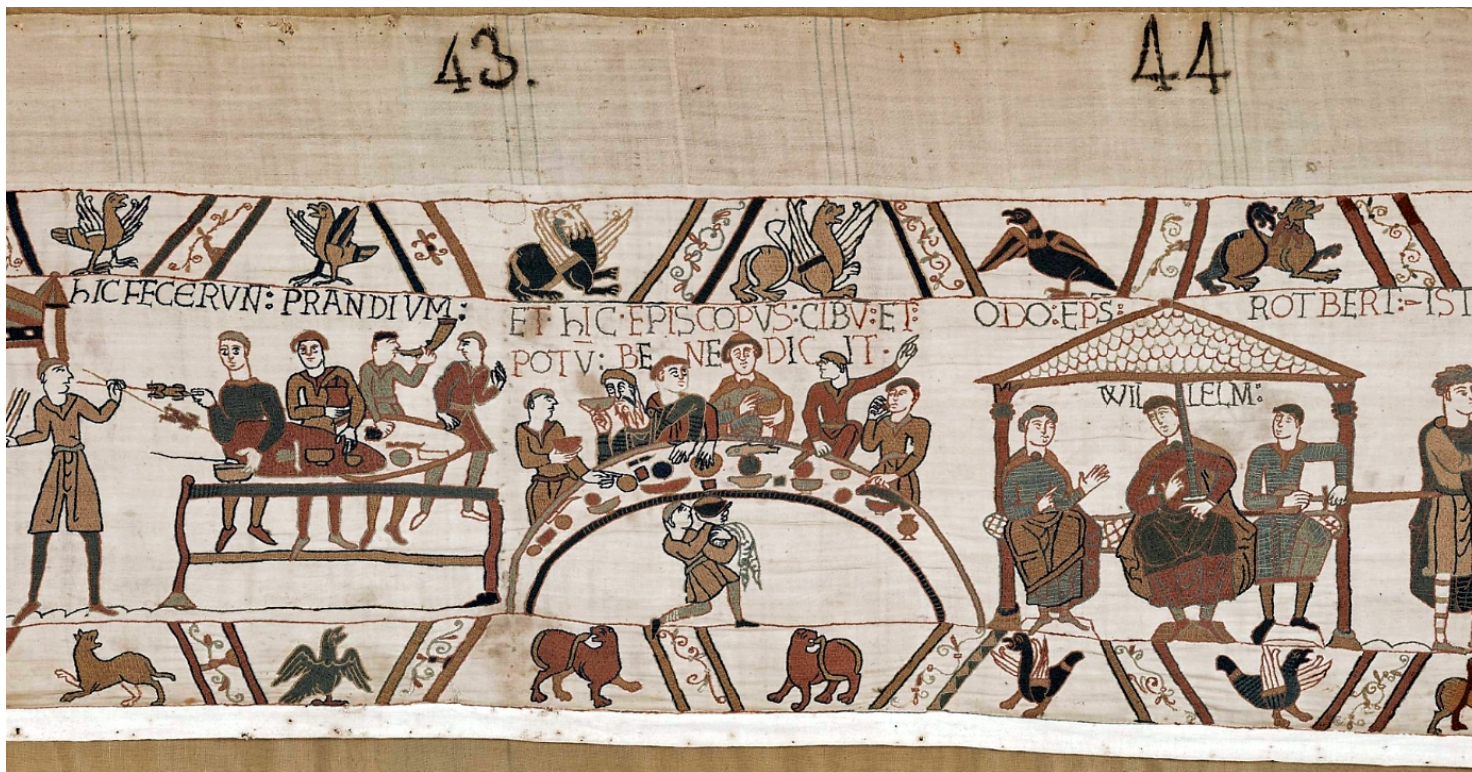 43.
44
hIC FECERVN: PRANDIVM:
ET hIC·EPISCOPVS:CIBV:ET:
POTV: BENEDICIT·
ODO:EPS:
WILLELM:
ROTBERT:-IST